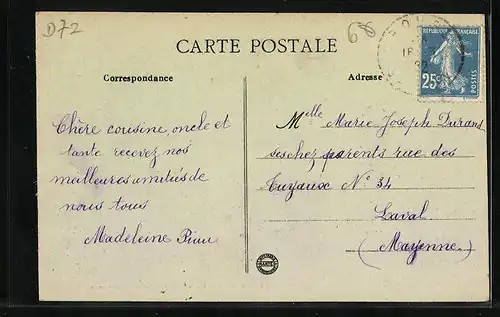 D72
68
CARTE POSTALE
Correspondance
Adresse
REPUBLIQUE FRANÇAISE
25c
POSTES
Chère cousine, oncle et
tante recevez nos
meilleures amitiés de
nous tous
Madeleine
Melle Marie Joseph Durand
ses chez parents rue des
Tuyaux N° 34
Laval
(Mayenne)